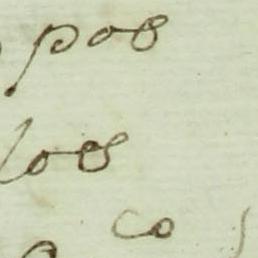 pos
los
co